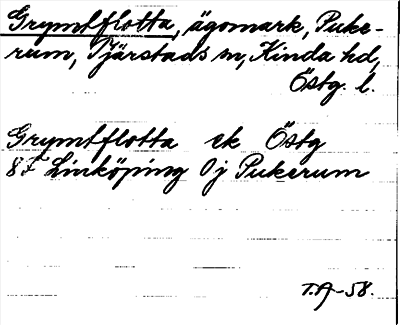 Grymtflotta, ägomark, Puke-
rum, Tjärstads sn, Kinda hd,
Östg. l.
Grymtflotta ek Östg
8F Linköping Oj Pukerum
T.A-58.